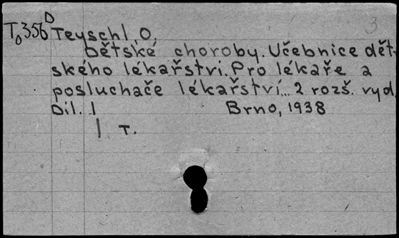 T₀356ᴰ Teyschl, O. 3
Dětské choroby. Učebnice dět-
ského lékařství. Pro lékaře a
posluchače lékařství... 2 rozš. vyd.
Díl. I Brno, 1938
| T.